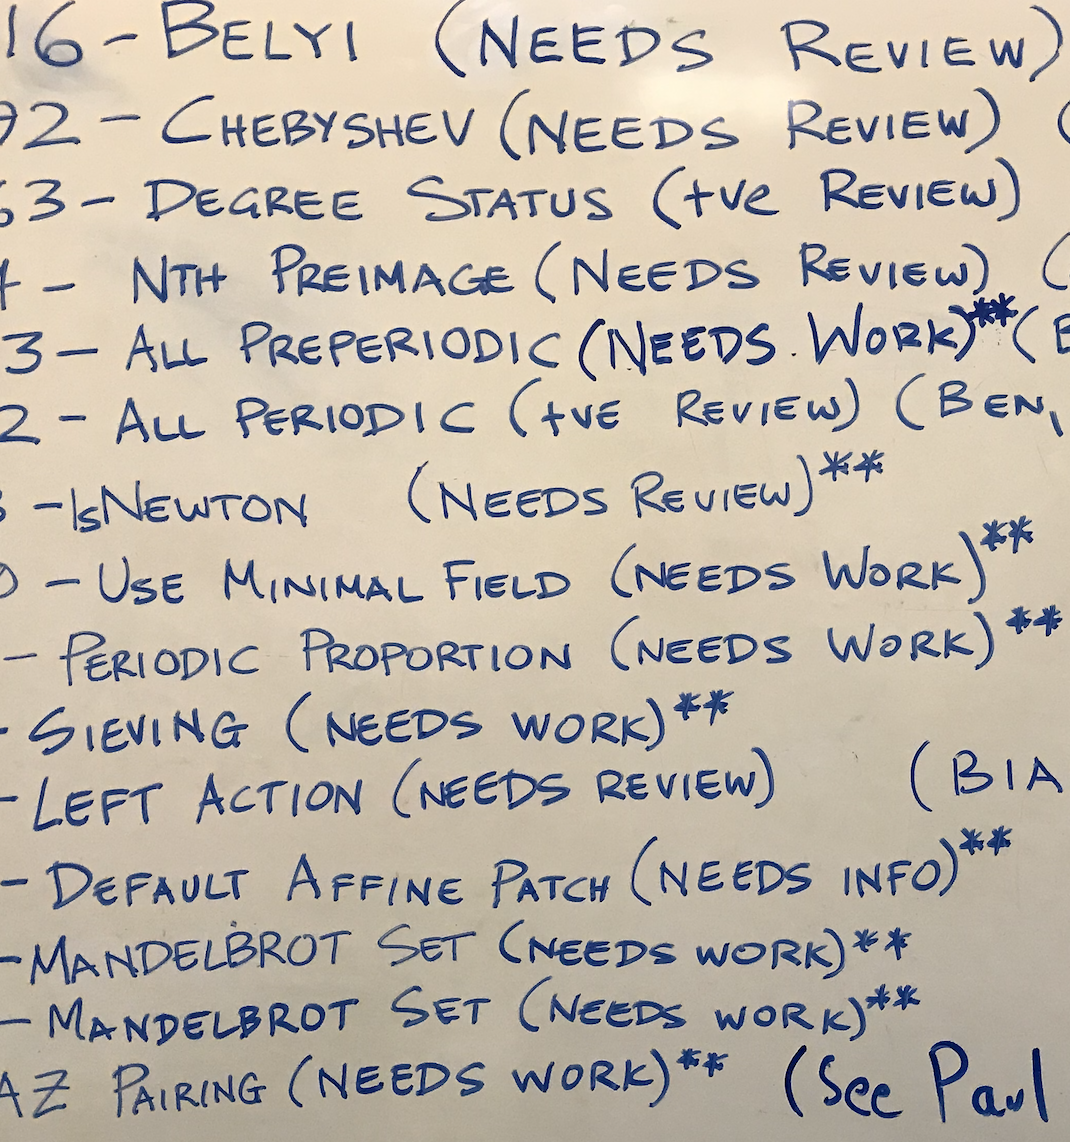 16 - BELYI (NEEDS REVIEW)
92 - CHEBYSHEV (NEEDS REVIEW) (
53 - DEGREE STATUS (+VE REVIEW)
- NTH PREIMAGE (NEEDS REVIEW) (
3 - ALL PREPERIODIC (NEEDS WORK)** (B
2 - ALL PERIODIC (+VE REVIEW) (BEN,
- IsNEWTON (NEEDS REVIEW)**
0 - USE MINIMAL FIELD (NEEDS WORK)**
- PERIODIC PROPORTION (NEEDS WORK)**
- SIEVING (NEEDS WORK)**
- LEFT ACTION (NEEDS REVIEW) (BIA
- DEFAULT AFFINE PATCH (NEEDS INFO)**
- MANDELBROT SET (NEEDS WORK)**
- MANDELBROT SET (NEEDS WORK)**
AZ PAIRING (NEEDS WORK)** (See Paul